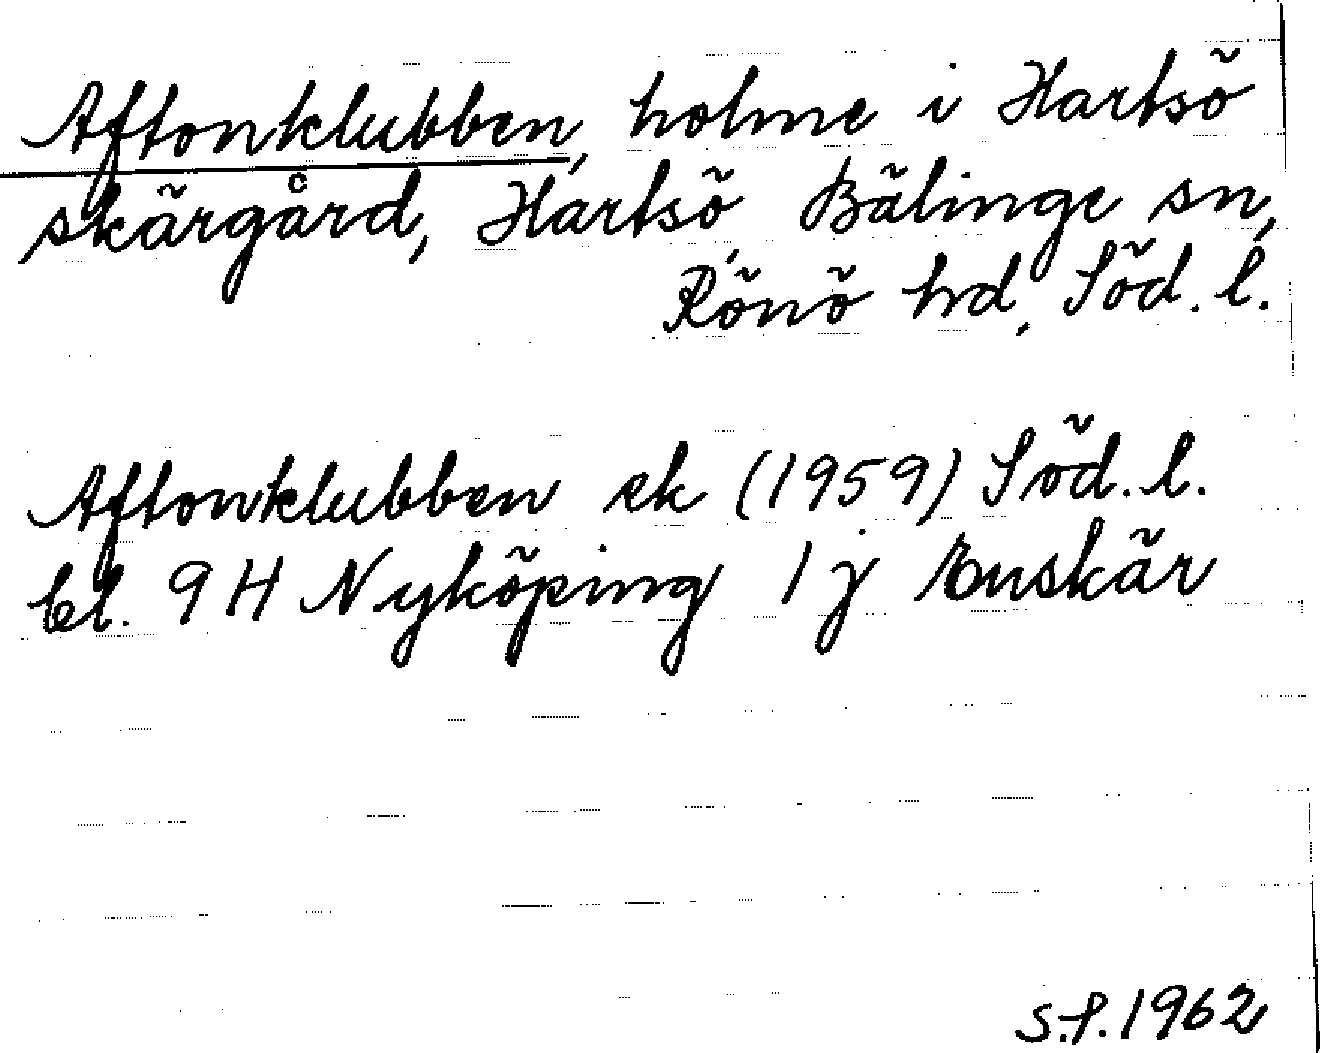 Aftonklubben, holme i Hartsö
skärgård, Hartsö, Bälinge sn,
Rönö hd, Söd. l.
Aftonklubben ek (1959) Söd. l.
bl. 9 H Nyköping 1 j Enskär
S.P. 1962